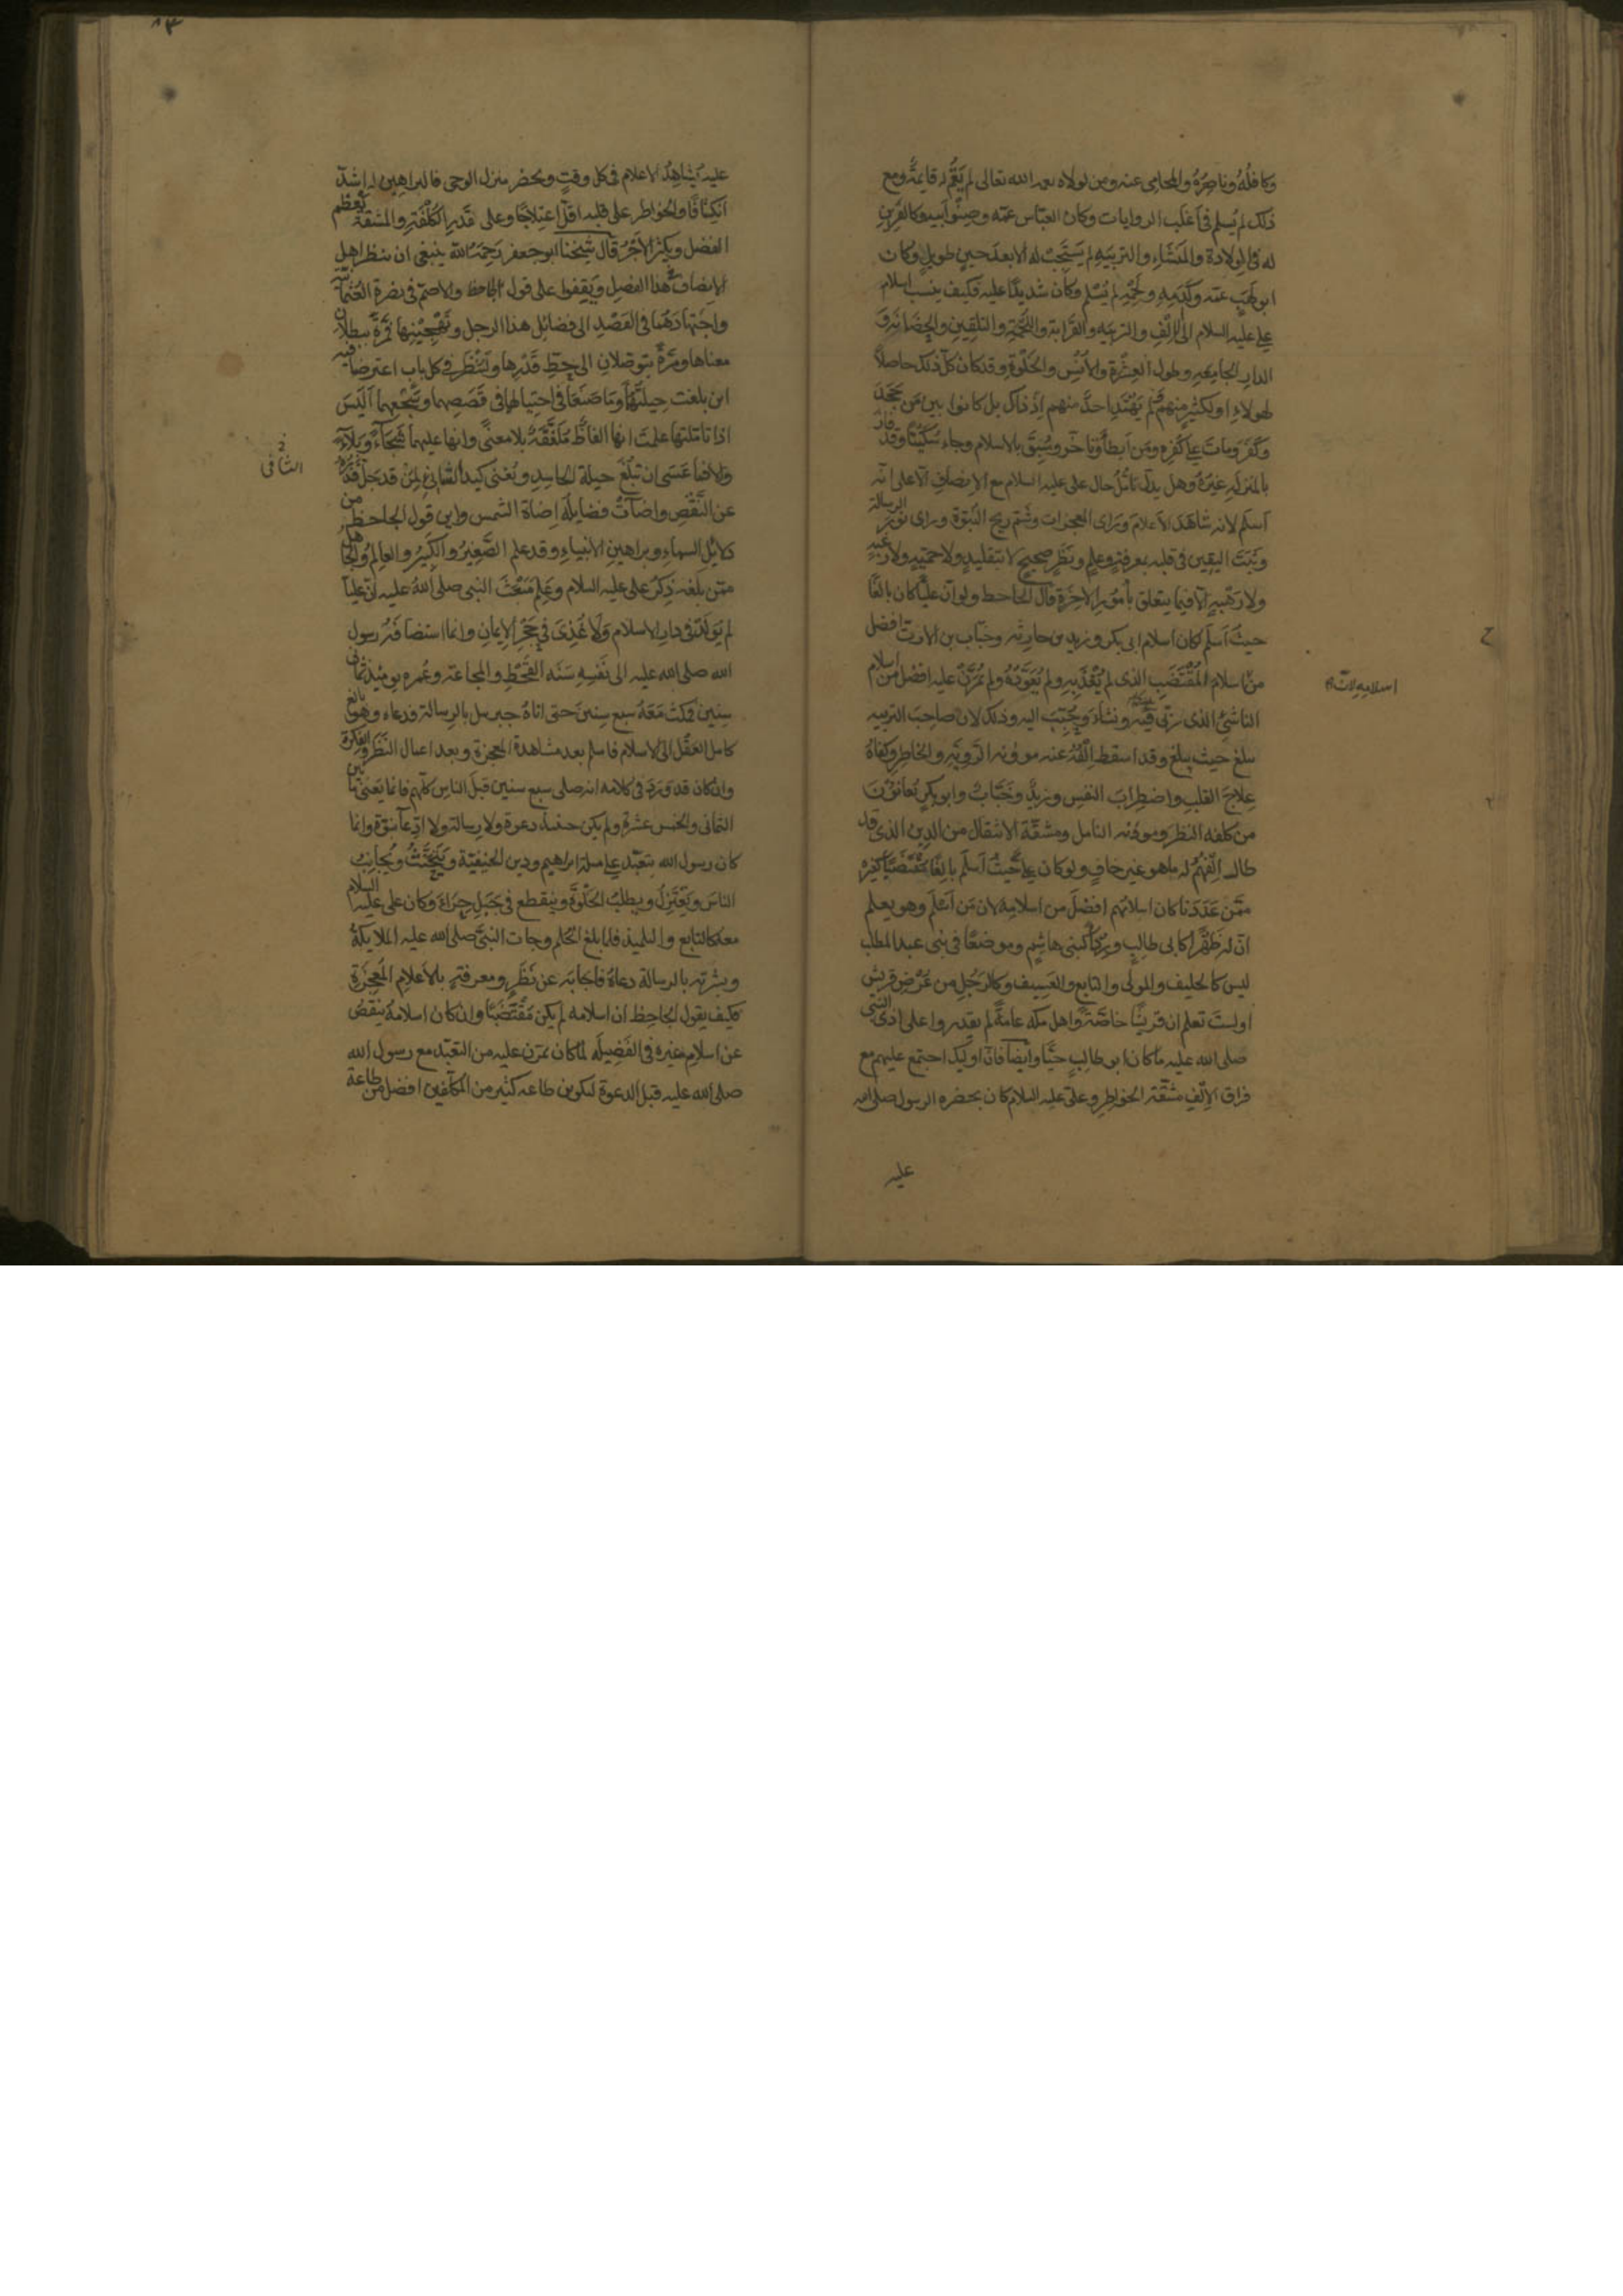 وكافله وناصره والمحامى عنه ومن لولاه بعد الله تعالى لم يقم له قايمة ومع
ذلك لم يسلم فى اغلب الروايات وكان العباس عمه وصنو ابيه وكالقرين
له فى الولادة والمنشاء والتربيه لم يستجب له الا بعد حين طويل وكان
ابو لهب عمه وكدمه ولحمه لم يسلم وكان شديدًا عليه فكيف ينسب اسلام
على عليه السلام الى الالف والتربيه والقرابة واللحمة والتلقين والحضانة و
الدار الجامعه وطول العشرة والانس والخلوة وقد كان كل ذلك حاصلًا
لهولاء او لكثير منهم فلم يهتد احد منهم اذ ذاك بل كانوا بين من جحد
وكفر ومات على كفره ومن ابطأ وتاخر وسبق بالاسلام وجاء سكيتا وقد فاز
بالمنزله غيره وهل يدل تأمل حال على عليه السلام مع الانصاف الا على انه
اسلم لانه شاهد الاعلام وراى المعجزات وشم ريح النبوة وراى نور الرسالة
وثبت اليقين فى قلبه بمعرفة وعلم ونظر صحيح لا بتقليد ولا حمية ولا رغبة
ولا رهبة الا فيما يتعلق بأمور الاخرة قال الجاحظ ولو ان عليا كان بالغًا
حيث اسلم لكان اسلام ابى بكر وزيد بن حارثه وخباب بن الارت افضل
من اسلامه لان
من اسلام المقتضب الذى لم يغذ به ولم يعوده ولم يمرن عليه افضل من اسلام
الناشئ الذى ربى فيه ونشا وحبب اليه وذلك لان صاحب التربيه
يبلغ حيث يبلغ وقد اسقط الفه عنه موونه الروية والخاطر وكفاه
علاج القلب واضطراب النفس وزيد وخباب وابو بكر يعانون
من كلفه النظر وموونه التامل ومشقة الانتقال من الدين الذى قد
طال الفهم له ما هو غير خاف ولو كان على حيث اسلم بالغًا مقتضبًا كغيره
ممن عددنا كان اسلامهم افضل من اسلامه لان من اسلم وهو يعلم
ان له ظهرًا كابى طالب وردءا كبنى هاشم وموضعًا فى بنى عبد المطلب
ليس كالحليف والمولى والتابع والعسيف وكالرجل من عرض قريش
اولست تعلم ان قريشًا خاصة واهل مكه عامة لم يقدروا على اذى النبى
صلى الله عليه ما كان ابو طالب حيًا وايضا فان اوليك اجتمع عليهم مع
فراق الالف مشقة الخواطر وعلى عليه السلام كان بحضره الرسول صلى الله
عليه
عليه يشاهد الاعلام فى كل وقت ويحضر منزل الوحى فالبراهين له اشد
انكشافًا والخواطر على قلبه اقل اعتلاجًا وعلى قدر الكلفة والمشقة يعظم
الفضل ويكثر الاجر قال شيخنا ابو جعفر رحمه الله ينبغى ان ينظر اهل
الانصاف هذا الفصل ويقفوا على قول الجاحظ والاصم فى نصرة العثمانية
واجتهادهما فى القصد الى فضائل هذا الرجل وتهجينها فمرة يبطلان
معناها ومرة يتوصلان الى حط قدرها ولينظر فى كل باب اعترضا فيه
اين بلغت حيلتهما وما صنعا فى احتيالهما فى قصصهما وسجعهما اليس
اذا تاملتها علمت انها الفاظ ملفقة بلا معنى وانها عليهما شجاء وبلاء
الثافى
والا فما عسى ان تبلغ حيلة الحاسد ويغنى كيد الشانئ لمن قد جل قدره
عن النقص واضآت فضايله اضاة الشمس واين قول الجاحظ من
دلايل السماء وبراهين الانبياء وقد علم الصغير والكبير والعالم والجاهل
ممن بلغه ذكر على عليه السلام وعلم مبعث النبى صلى الله عليه ان عليا
لم يولد فى دار الاسلام ولا غذى فى حجر الايمان وانما استضافه رسول
الله صلى الله عليه الى نفسه سنه القحط والمجاعة وعمره يومئذ ثمانى
سنين فمكث معه سبع سنين حتى اتاه جبريل بالرسالة فدعاه وهو بالغ
كامل العقل الى الاسلام فاسلم بعد مشاهدة المعجزة وبعد اعمال النظر والفكرة
وان كان قد ورد فى كلامه انه صلى سبع سنين قبل الناس كلهم فانما يعنى ما بين
الثمانى والخمس عشرة ولم يكن حينئذ دعوة ولا رسالة ولا ادعآ نبوة وانما
كان رسول الله يتعبد على ملة ابراهيم ودين الحنيفية ويتحنث ويجانب
الناس ويعتزل ويطلب الخلوة وينقطع فى جبل حراء وكان على عليه السلام
معه كالتابع والتلميذ فلما بلغ الحلم وجات النبى صلى الله عليه الملايكة
وبشرته بالرسالة دعاه فاجابه عن نظر ومعرفة بالاعلام المعجزة
فكيف يقول الجاحظ ان اسلامه لم يكن مقتضبًا وان كان اسلامه ينقص
عن اسلام غيره فى الفضيله لما كان يمرن عليه من التعبد مع رسول الله
صلى الله عليه قبل الدعوة لتكونن طاعه كثير من المكلفين افضل من طاعة